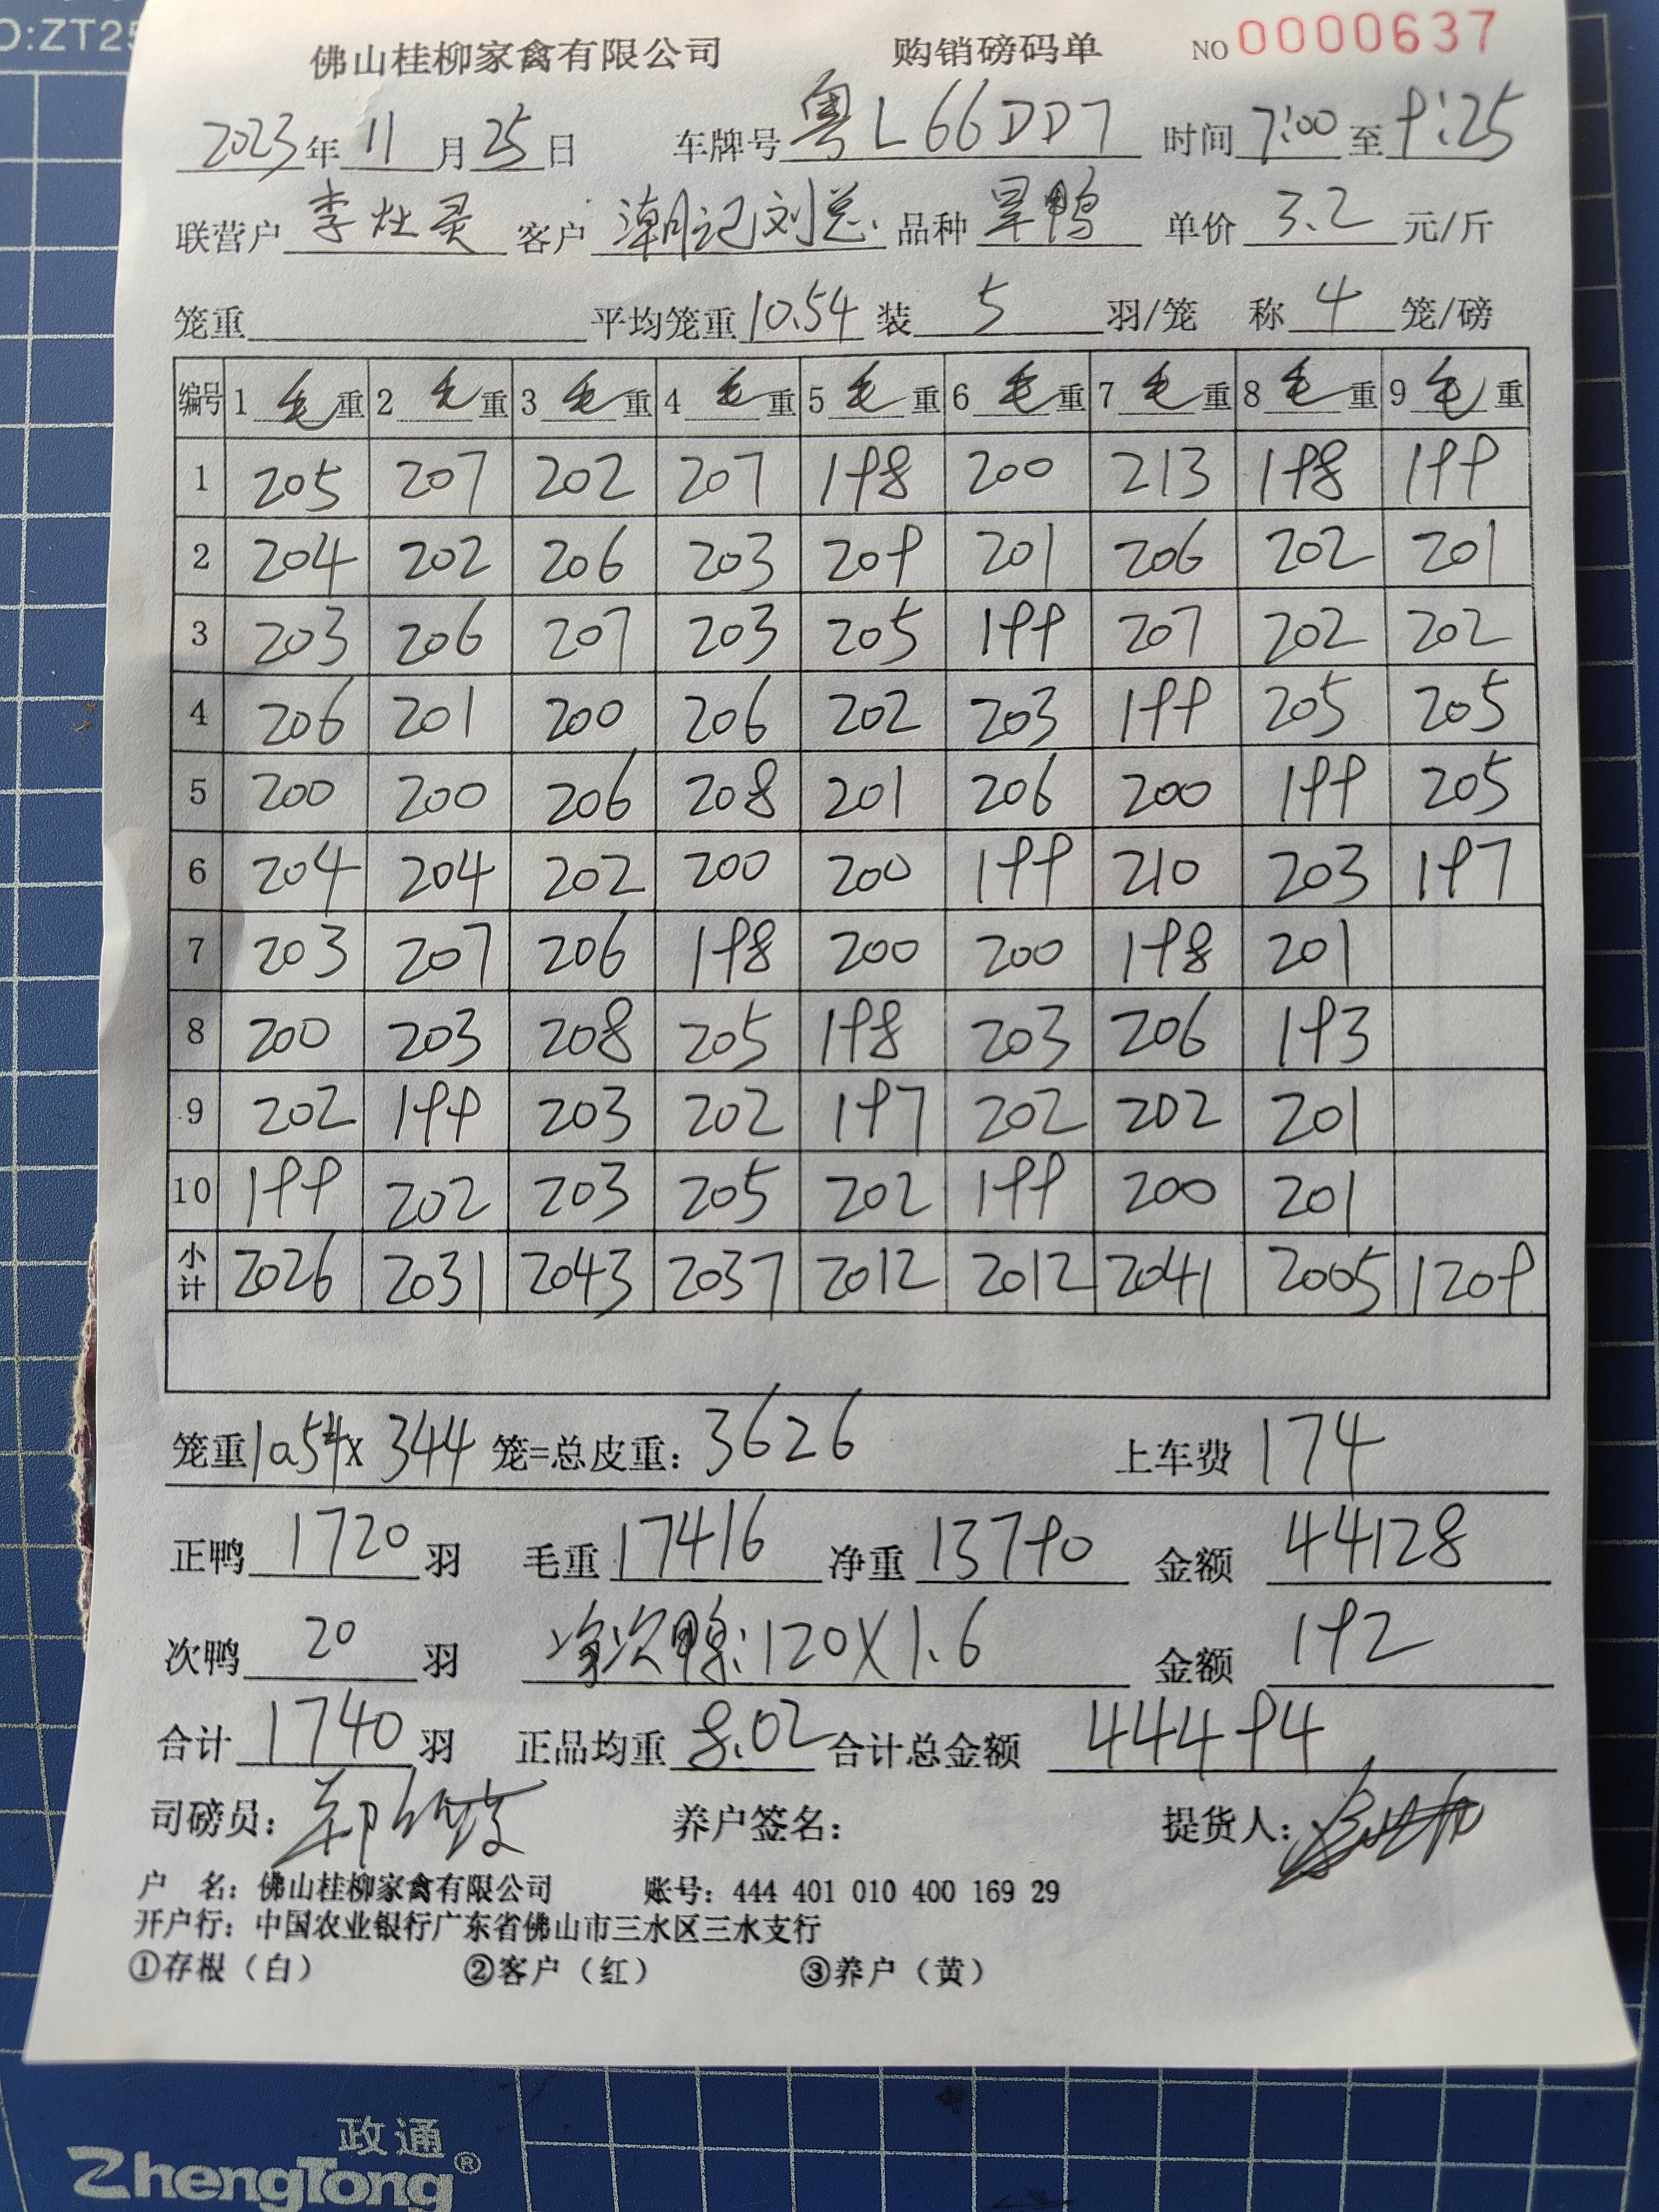 O:ZT25
佛山桂柳家禽有限公司 购销磅码单 NO 0000637
2023年11月25日 车牌号粤L66DD7 时间7:00至9:25
联营户李灶灵 客户潮记刘总 品种旱鸭 单价3.2元/斤
笼重 平均笼重10.54 装5羽/笼 称4笼/磅
编号 1毛重 2毛重 3毛重 4毛重 5毛重 6毛重 7毛重 8毛重 9毛重
1 205 207 202 207 198 200 213 198 199
2 204 202 206 203 209 201 206 202 201
3 203 206 207 203 205 199 207 202 202
4 206 201 200 206 202 203 199 205 205
5 200 200 206 208 201 206 200 199 205
6 204 204 202 200 200 199 210 203 197
7 203 207 206 198 200 200 198 201
8 200 203 208 205 198 203 206 193
9 202 199 203 202 197 202 202 201
10 199 202 203 205 202 199 200 201
小计 2026 2031 2043 2037 2012 2012 2041 2005 1209
笼重10.54x344笼=总皮重:3626 上车费174
正鸭1720羽 毛重17416 净重13790 金额44128
次鸭20羽 净次鸭:120X1.6 金额192
合计1740羽 正品均重8.02 合计总金额44494
司磅员: 养户签名: 提货人:
户 名:佛山桂柳家禽有限公司 账号:444 401 010 400 169 29
开户行:中国农业银行广东省佛山市三水区三水支行
①存根(白) ②客户(红) ③养户(黄)
政通
ZhengTong®